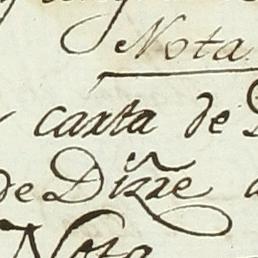 Nota
carta de
de Dizre
Nota